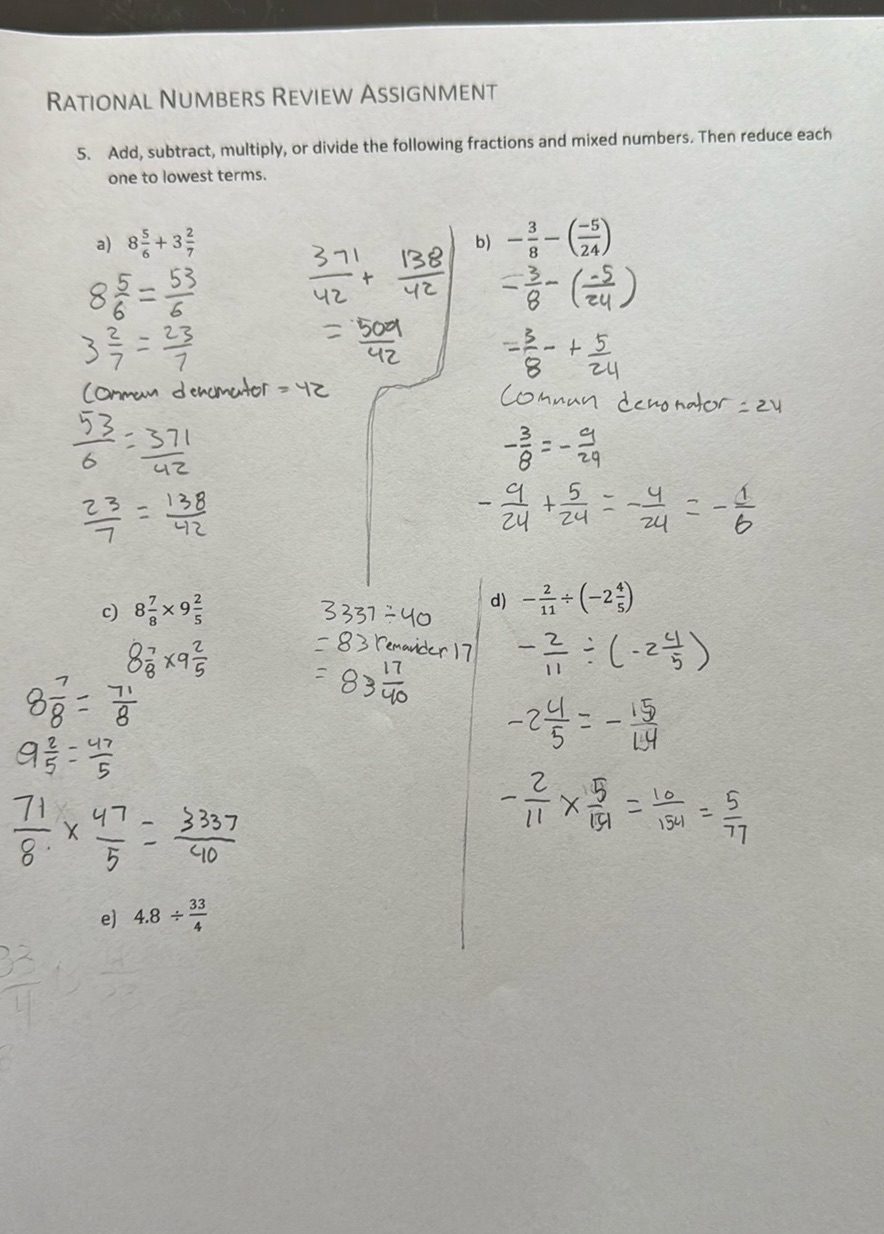 RATIONAL NUMBERS REVIEW ASSIGNMENT
5. Add, subtract, multiply, or divide the following fractions and mixed numbers. Then reduce each
one to lowest terms.
a) 8 5/6 + 3 2/7
8 5/6 = 53/6
3 2/7 = 23/7
Common denomator = 42
53/6 = 371/42
23/7 = 138/42
371/42 + 138/42
= 509/42
b) -3/8 - (-5/24)
-3/8 - (-5/24)
-3/8 - + 5/24
Common denonator = 24
-3/8 = -9/24
-9/24 + 5/24 = -4/24 = -1/6
c) 8 7/8 × 9 2/5
8 7/8 × 9 2/5
8 7/8 = 71/8
9 2/5 = 47/5
71/8 × 47/5 = 3337/40
3337 ÷ 40
= 83 remainder 17
= 83 17/40
d) -2/11 ÷ (-2 4/5)
-2/11 ÷ (-2 4/5)
-2 4/5 = -15/14
-2/11 × 5/14 = 10/154 = 5/77
e) 4.8 ÷ 33/4
33/4